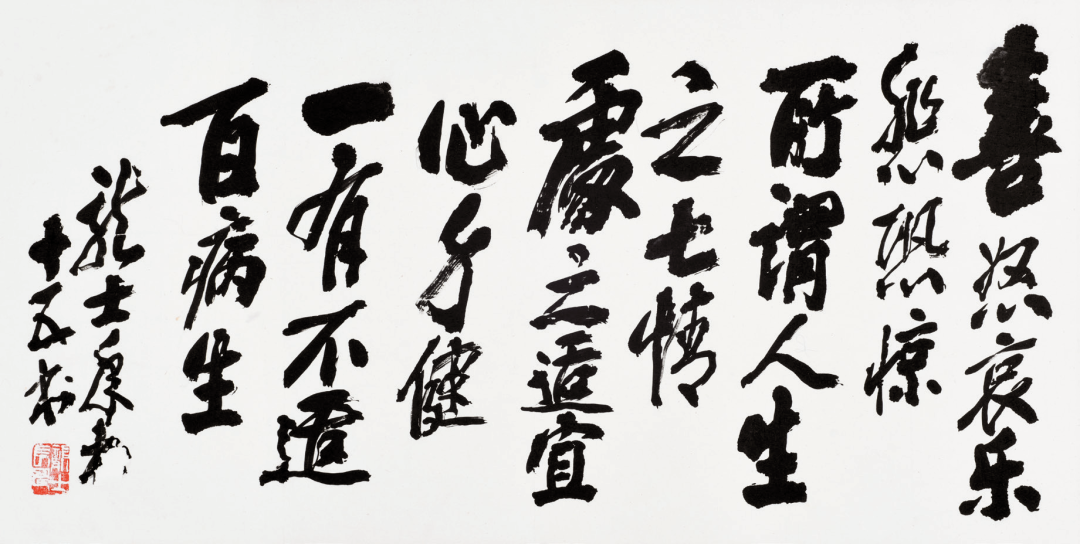 喜怒哀乐
悲恐惊
所謂人生
之七情
處之适宜
心身健
一有不適
百病生
龍士
十五